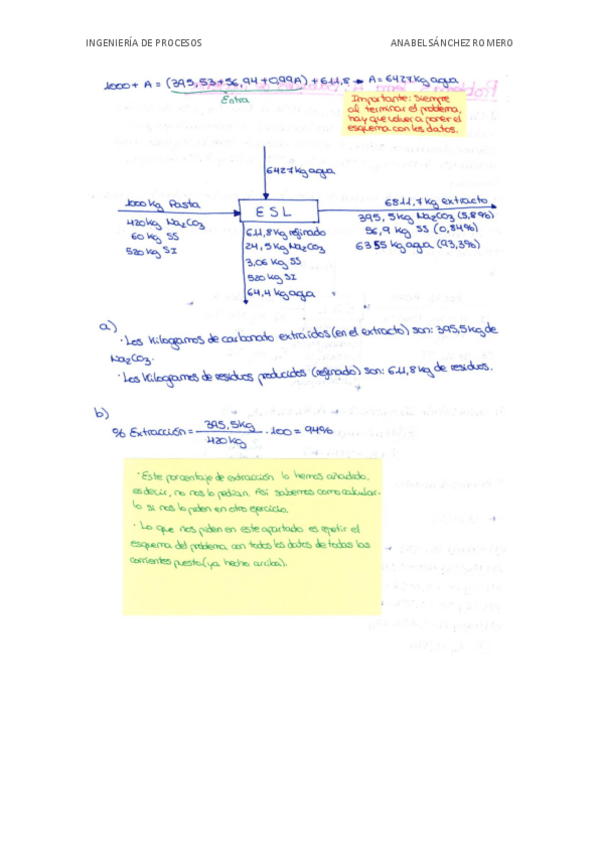 INGENIERÍA DE PROCESOS ANABEL SÁNCHEZ ROMERO
1000 + A = (395,53+56,94+0,99A) + 611,8 → A = 6427 kg agua
Entra
Importante: Siempre
al terminar el problema,
hay que volver a poner el
esquema con los datos.
6427 kg agua
1000 kg Pasta
420 kg Na2CO3
60 kg SS
520 kg SI
ESL
6811,7 kg extracto
395,5 kg Na2CO3 (5,8%)
56,9 kg SS (0,84%)
6355 kg agua (93,3%)
611,8 kg refinado
24,5 kg Na2CO3
3,06 kg SS
520 kg SI
64,4 kg agua
a)
· Los Kilogramos de carbonato extraídos (en el extracto) son: 395,5 kg de
Na2CO3.
· Los Kilogramos de residuos producidos (refinado) son: 611,8 kg de residuos.
b)
% Extracción = 395,5 kg / 420 kg · 100 = 94%
· Este porcentaje de extracción lo hemos añadido,
es decir, no nos lo pedían. Así sabemos como calcular-
lo si nos lo piden en otro ejercicio.
· Lo que nos piden en este apartado es repetir el
esquema del problema con todos los datos de todas las
corrientes puesto (ya hecho arriba).